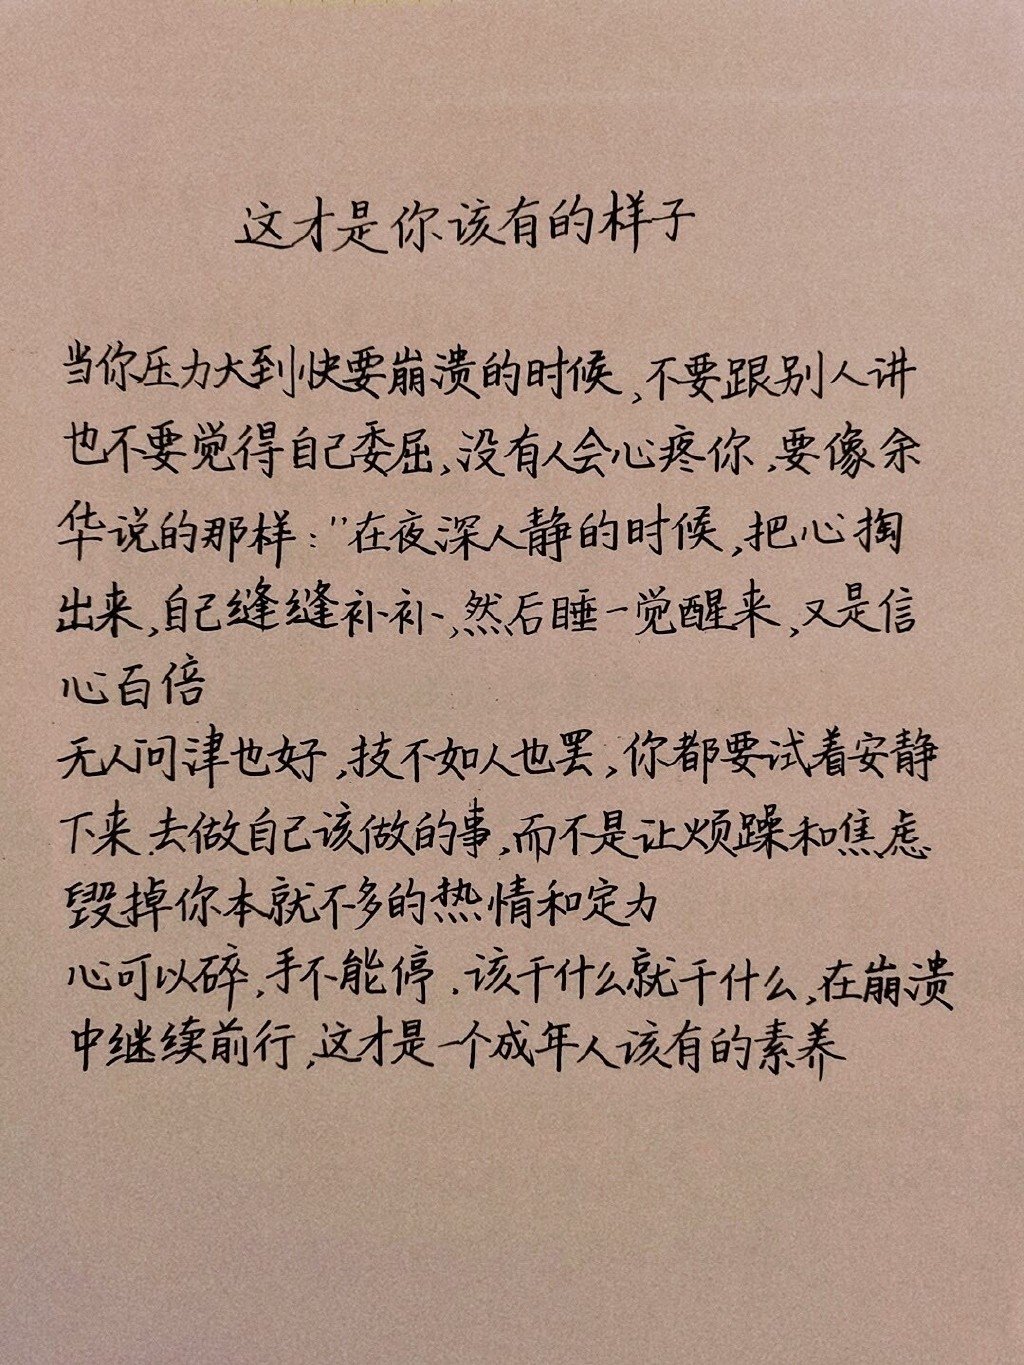 这才是你该有的样子
当你压力大到快要崩溃的时候,不要跟别人讲
也不要觉得自己委屈,没有人会心疼你,要像余
华说的那样:"在夜深人静的时候,把心掏
出来,自己缝缝补补,然后睡一觉醒来,又是信
心百倍
无人问津也好,技不如人也罢,你都要试着安静
下来.去做自己该做的事,而不是让烦躁和焦虑
毁掉你本就不多的热情和定力
心可以碎,手不能停.该干什么就干什么,在崩溃
中继续前行,这才是一个成年人该有的素养